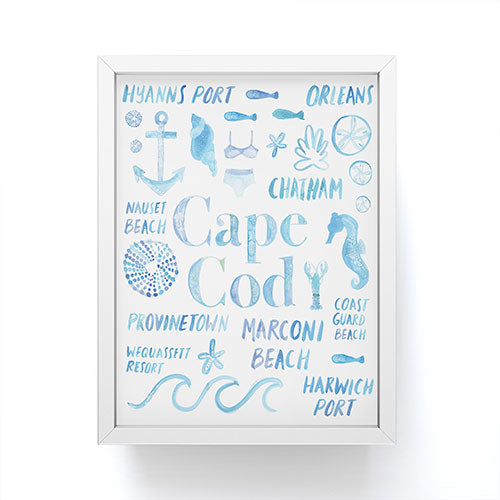 HYANNS PORT
ORLEANS
CHATHAM
NAUSET
BEACH
Cape
Cod
COAST
GUARD
BEACH
PROVINETOWN
MARCONI
BEACH
WEQUASSETT
RESORT
HARWICH
PORT